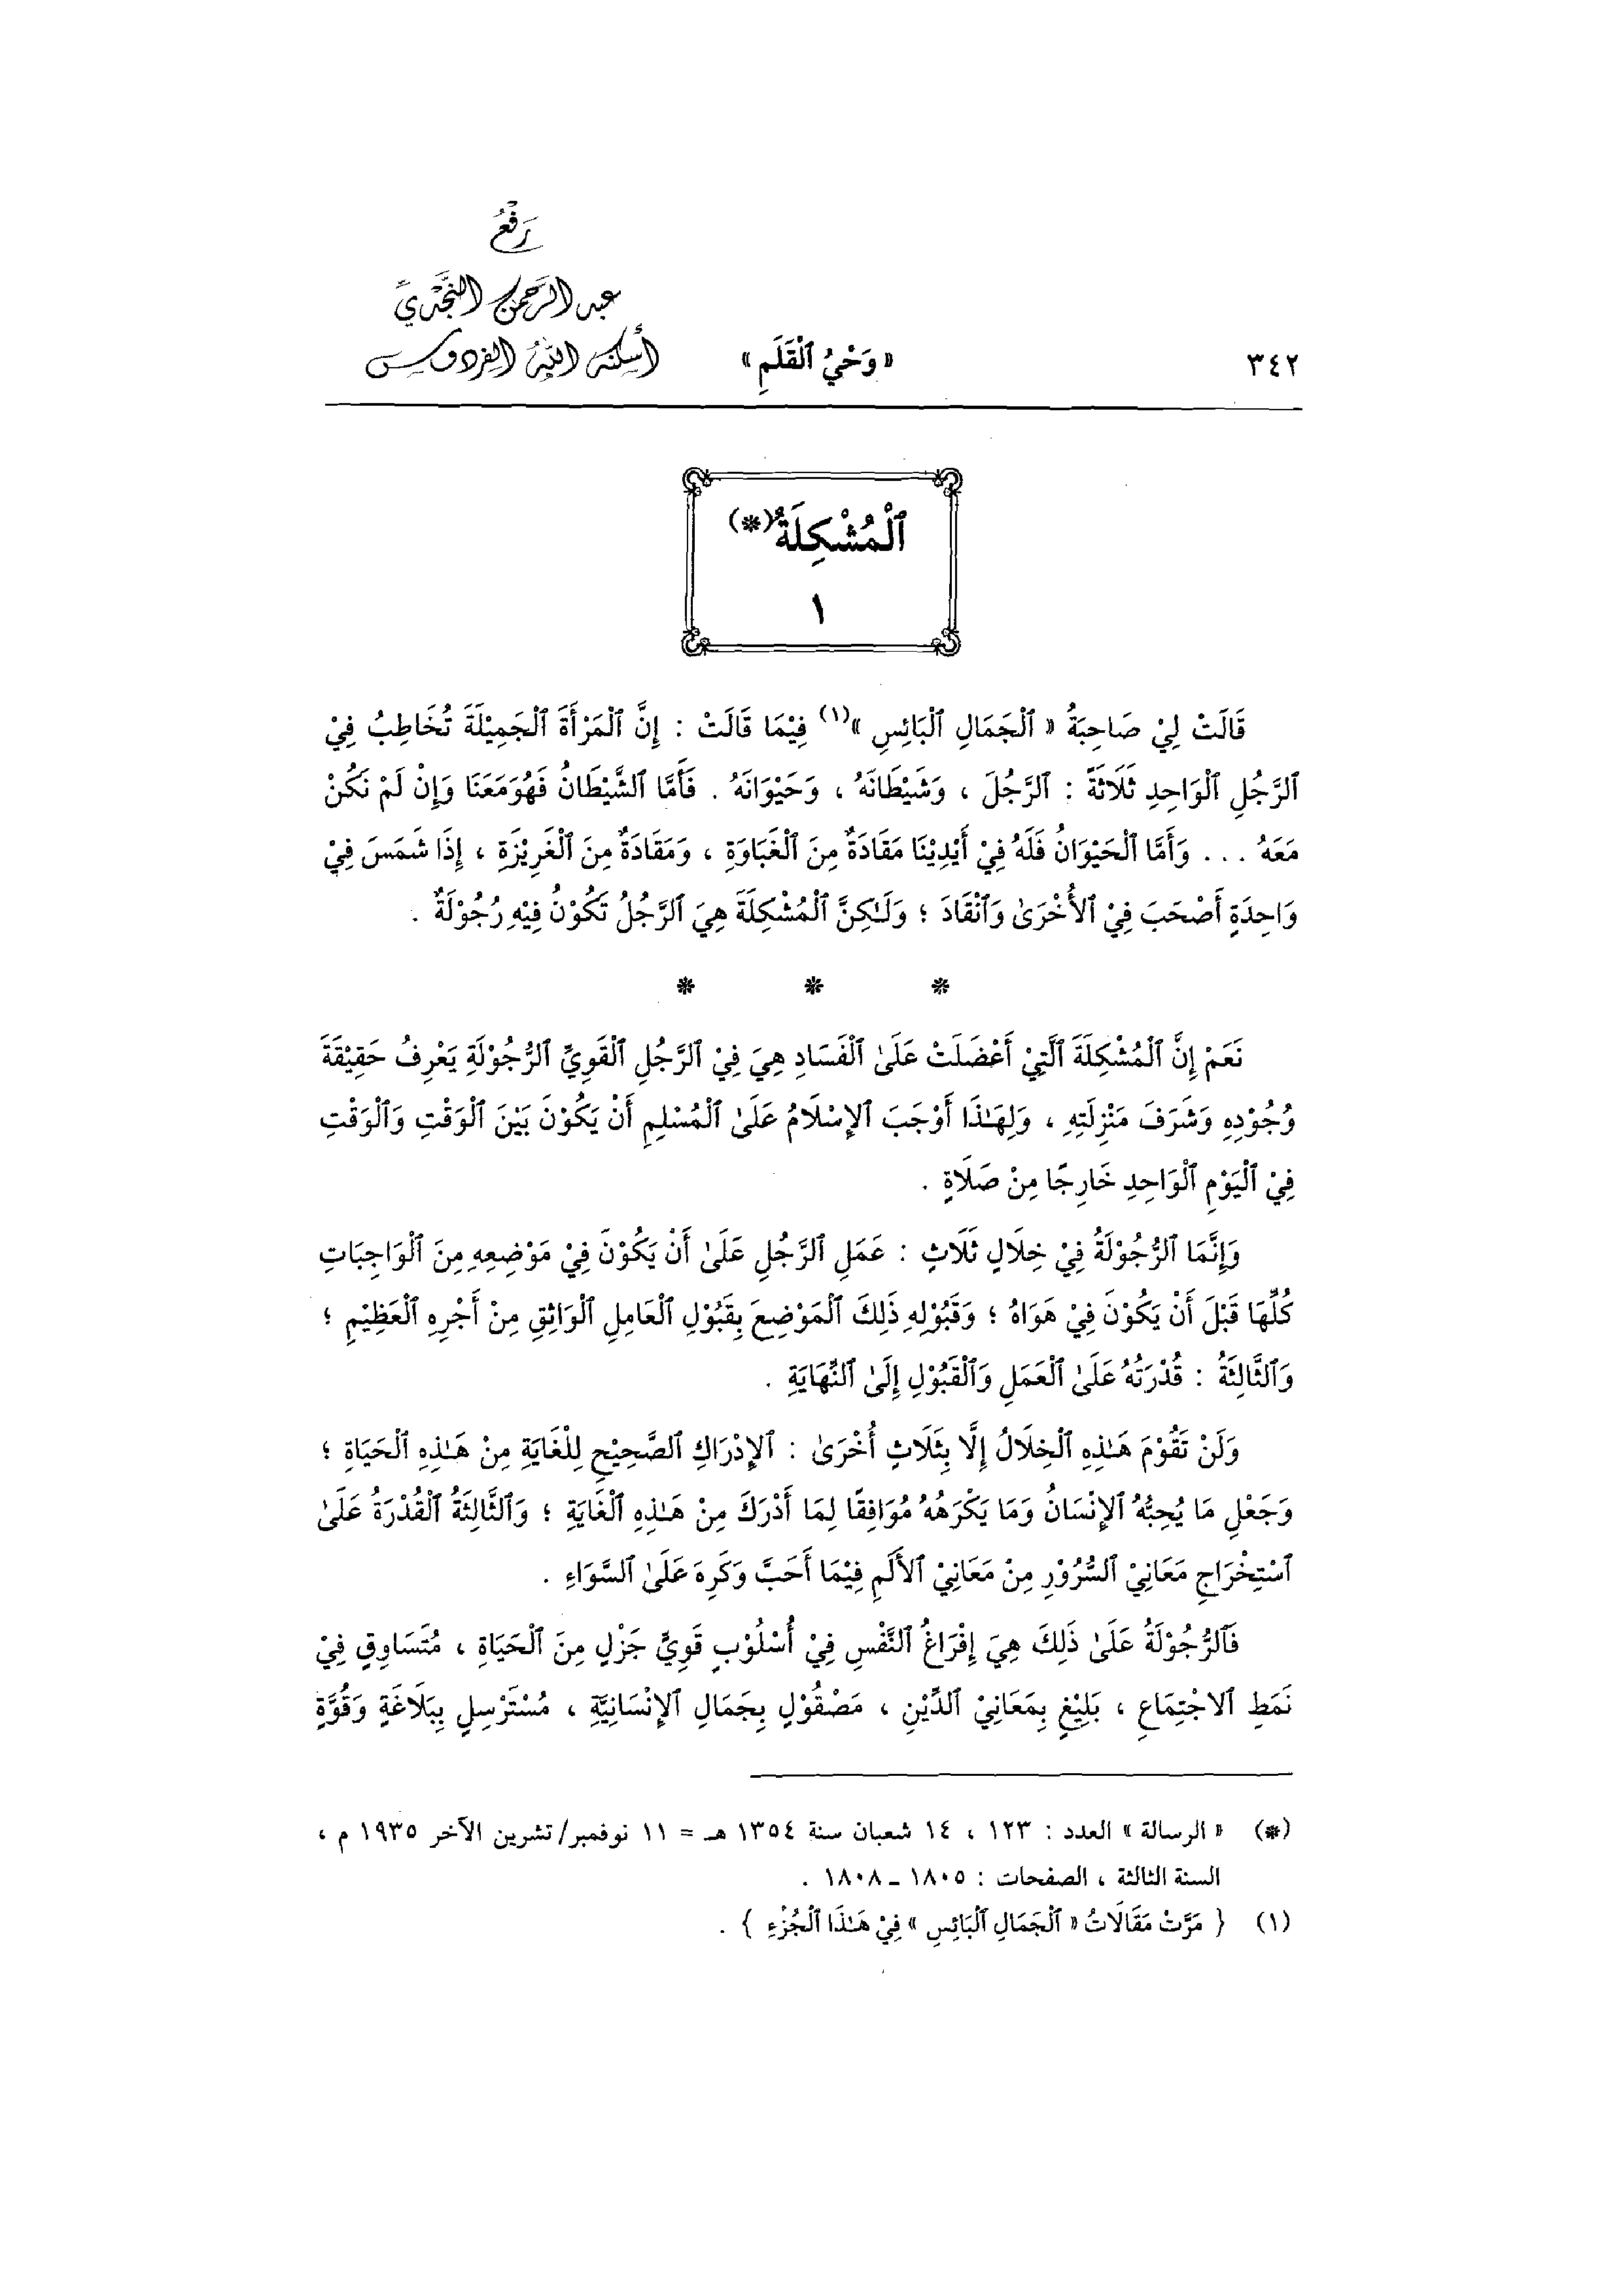 رَفْعُ
عبد الرَّحمن النَّجْديّ
أسكنه الله الفردوس
٣٤٢
« وَحْيُ ٱلْقَلَمِ »
ٱلْمُشْكِلَةُ(*)
١
قَالَتْ لِيْ صَاحِبَةُ « ٱلْجَمَالِ ٱلْبَائِسِ »(١) فِيْمَا قَالَتْ : إِنَّ ٱلْمَرْأَةَ ٱلْجَمِيْلَةَ تُخَاطِبُ فِيْ
ٱلرَّجُلِ ٱلْوَاحِدِ ثَلَاثَةً : ٱلرَّجُلَ ، وَشَيْطَانَهُ ، وَحَيْوَانَهُ . فَأَمَّا ٱلشَّيْطَانُ فَهُوَ مَعَنَا وَإِنْ لَمْ نَكُنْ
مَعَهُ . . . وَأَمَّا ٱلْحَيْوَانُ فَلَهُ فِيْ أَيْدِيْنَا مَقَادَةٌ مِنَ ٱلْغَبَاوَةِ ، وَمَقَادَةٌ مِنَ ٱلْغَرِيْزَةِ ، إِذَا شَمَسَ فِيْ
وَاحِدَةٍ أَصْحَبَ فِيْ ٱلأُخْرَىٰ وَٱنْقَادَ ؛ وَلَـٰكِنَّ ٱلْمُشْكِلَةَ هِيَ ٱلرَّجُلُ تَكُوْنُ فِيْهِ رُجُوْلَةٌ .
* * *
نَعَمْ إِنَّ ٱلْمُشْكِلَةَ ٱلَّتِيْ أَعْضَلَتْ عَلَىٰ ٱلْفَسَادِ هِيَ فِيْ ٱلرَّجُلِ ٱلْقَوِيِّ ٱلرُّجُوْلَةِ يَعْرِفُ حَقِيْقَةَ
وُجُوْدِهِ وَشَرَفَ مَنْزِلَتِهِ ، وَلِهَـٰذَا أَوْجَبَ ٱلإِسْلَامُ عَلَىٰ ٱلْمُسْلِمِ أَنْ يَكُوْنَ بَيْنَ ٱلْوَقْتِ وَٱلْوَقْتِ
فِيْ ٱلْيَوْمِ ٱلْوَاحِدِ خَارِجًا مِنْ صَلَاةٍ .
وَإِنَّمَا ٱلرُّجُوْلَةُ فِيْ خِلَالٍ ثَلَاثٍ : عَمَلِ ٱلرَّجُلِ عَلَىٰ أَنْ يَكُوْنَ فِيْ مَوْضِعِهِ مِنَ ٱلْوَاجِبَاتِ
كُلِّهَا قَبْلَ أَنْ يَكُوْنَ فِيْ هَوَاهُ ؛ وَقَبُوْلِهِ ذَلِكَ ٱلْمَوْضِعَ بِقَبُوْلِ ٱلْعَامِلِ ٱلْوَاثِقِ مِنْ أَجْرِهِ ٱلْعَظِيْمِ ؛
وَٱلثَّالِثَةُ : قُدْرَتُهُ عَلَىٰ ٱلْعَمَلِ وَٱلْقَبُوْلِ إِلَىٰ ٱلنِّهَايَةِ .
وَلَنْ تَقُوْمَ هَـٰذِهِ ٱلْخِلَالُ إِلَّا بِثَلَاثٍ أُخْرَىٰ : ٱلإِدْرَاكِ ٱلصَّحِيْحِ لِلْغَايَةِ مِنْ هَـٰذِهِ ٱلْحَيَاةِ ؛
وَجَعْلِ مَا يُحِبُّهُ ٱلإِنْسَانُ وَمَا يَكْرَهُهُ مُوَافِقًا لِمَا أَدْرَكَ مِنْ هَـٰذِهِ ٱلْغَايَةِ ؛ وَٱلثَّالِثَةُ ٱلْقُدْرَةُ عَلَىٰ
ٱسْتِخْرَاجِ مَعَانِيْ ٱلسُّرُوْرِ مِنْ مَعَانِيْ ٱلأَلَمِ فِيْمَا أَحَبَّ وَكَرِهَ عَلَىٰ ٱلسَّوَاءِ .
فَٱلرُّجُوْلَةُ عَلَىٰ ذَلِكَ هِيَ إِفْرَاغُ ٱلنَّفْسِ فِيْ أُسْلُوْبٍ قَوِيٍّ جَزْلٍ مِنَ ٱلْحَيَاةِ ، مُتَسَاوِقٍ فِيْ
نَمَطِ ٱلاجْتِمَاعِ ، بَلِيْغٍ بِمَعَانِيْ ٱلدِّيْنِ ، مَصْقُوْلٍ بِجَمَالِ ٱلإِنْسَانِيَّةِ ، مُسْتَرْسِلٍ بِبَلَاغَةٍ وَقُوَّةٍ
(*) « الرسالة » العدد : ١٢٣ ، ١٤ شعبان سنة ١٣٥٤ هـ = ١١ نوفمبر/ تشرين الآخر ١٩٣٥ م ،
السنة الثالثة ، الصفحات : ١٨٠٥ ـ ١٨٠٨ .
(١) { مَرَّتْ مَقَالَاتُ « ٱلْجَمَالِ ٱلْبَائِسِ » فِيْ هَـٰذَا ٱلْجُزْءِ } .